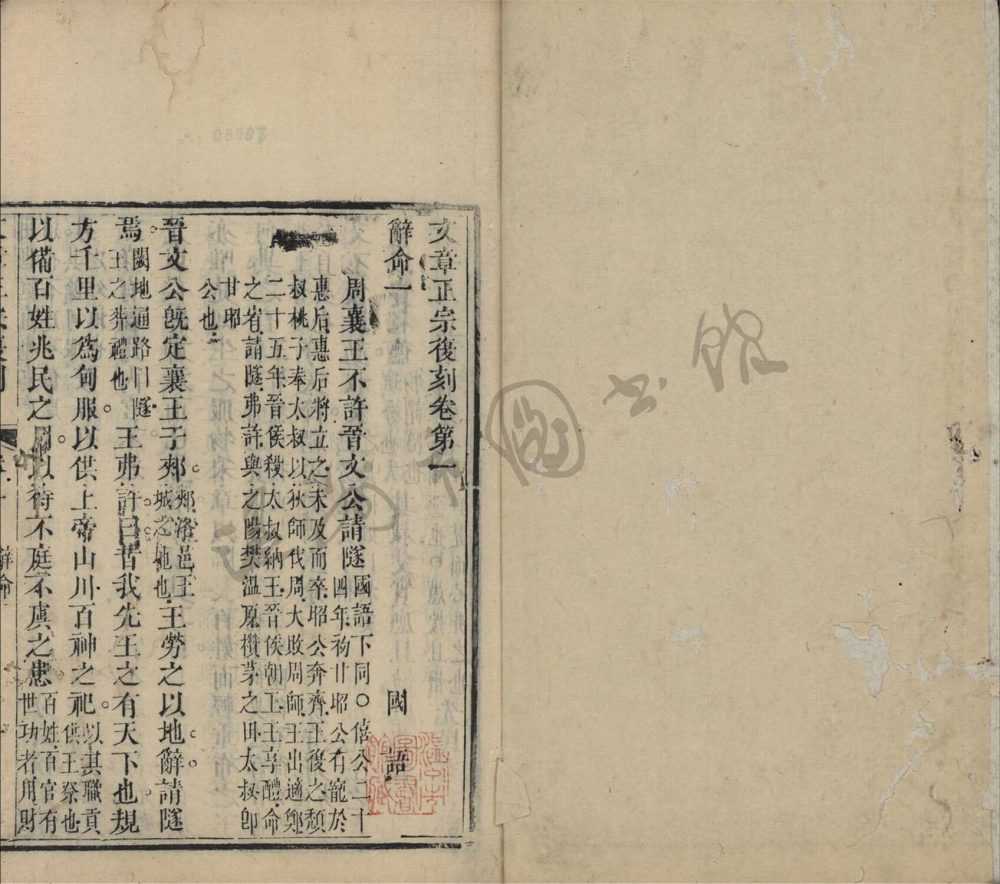 文章正宗復刻卷第一
辭命一 國語
周襄王不許晉文公請隧國語下同○僖公二十
四年初甘昭公有寵於
惠后惠后將立之未及而卒昭公奔齊王復之頹
叔桃子奉太叔以狄師伐周大敗周師王出適鄭
二十五年晉侯殺太叔納王晉侯朝王王享醴命
之宥請隧弗許與之陽樊溫原攢茅之田太叔卽
甘昭
公也
晉文公旣定襄王于郟郟洛邑王城之地也王勞之以地辭請隧
焉闕地通路曰隧王之葬禮也王弗許曰昔我先王之有天下也規
方千里以爲甸服以供上帝山川百神之祀以其職貢供王祭也
以備百姓兆民之用百姓百官有世功者用財以待不庭不虞之患
辭命
書館
08907